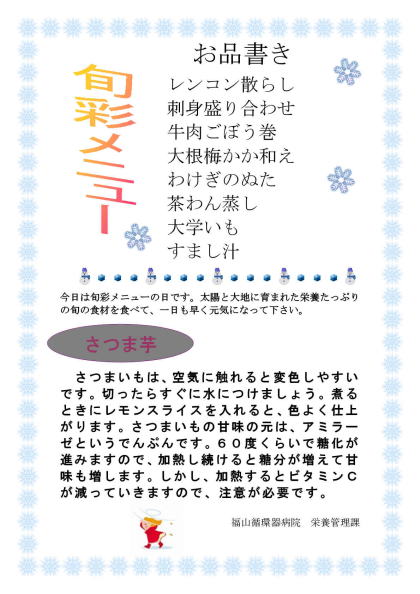 お品書き
旬彩メニュー
レンコン散らし
刺身盛り合わせ
牛肉ごぼう巻
大根梅かか和え
わけぎのぬた
茶わん蒸し
大学いも
すまし汁
今日は旬彩メニューの日です。太陽と大地に育まれた栄養たっぷり
の旬の食材を食べて、一日も早く元気になって下さい。
さつま芋
さつまいもは、空気に触れると変色しやすい
です。切ったらすぐに水につけましょう。煮る
ときにレモンスライスを入れると、色よく仕上
がります。さつまいもの甘味の元は、アミラー
ゼというでんぷんです。６０度くらいで糖化が
進みますので、加熱し続けると糖分が増えて甘
味も増します。しかし、加熱するとビタミンＣ
が減っていきますので、注意が必要です。
福山循環器病院　栄養管理課